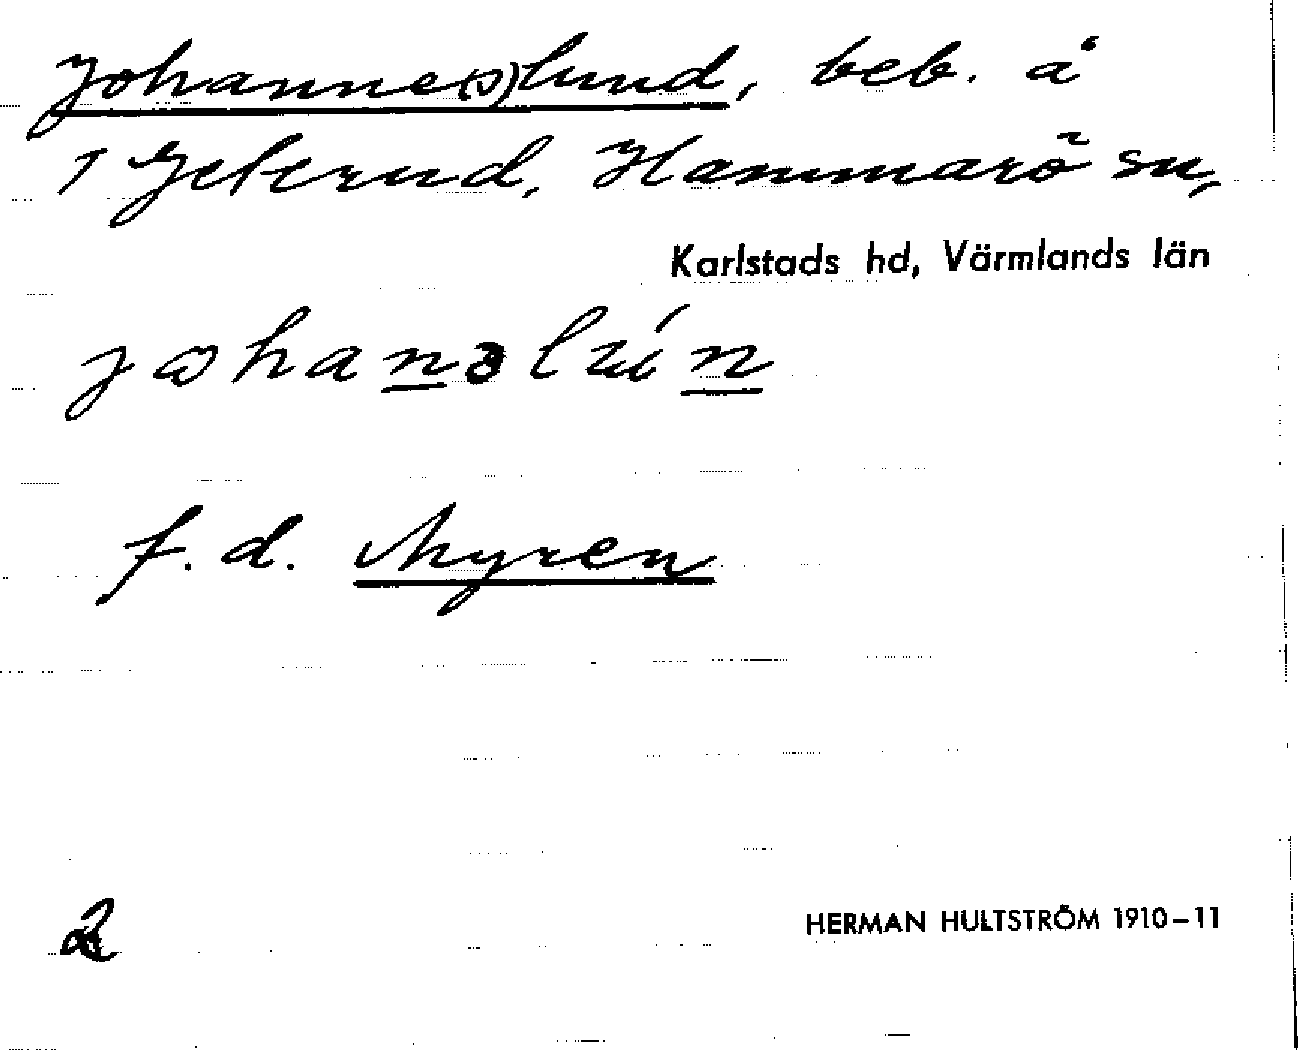 Johanne(s)lund, beb. å
1 Jelerud, Hammarö sn,
Karlstads hd, Värmlands län
johansluń
f. d. Myren
2
HERMAN HULTSTRÖM 1910-11